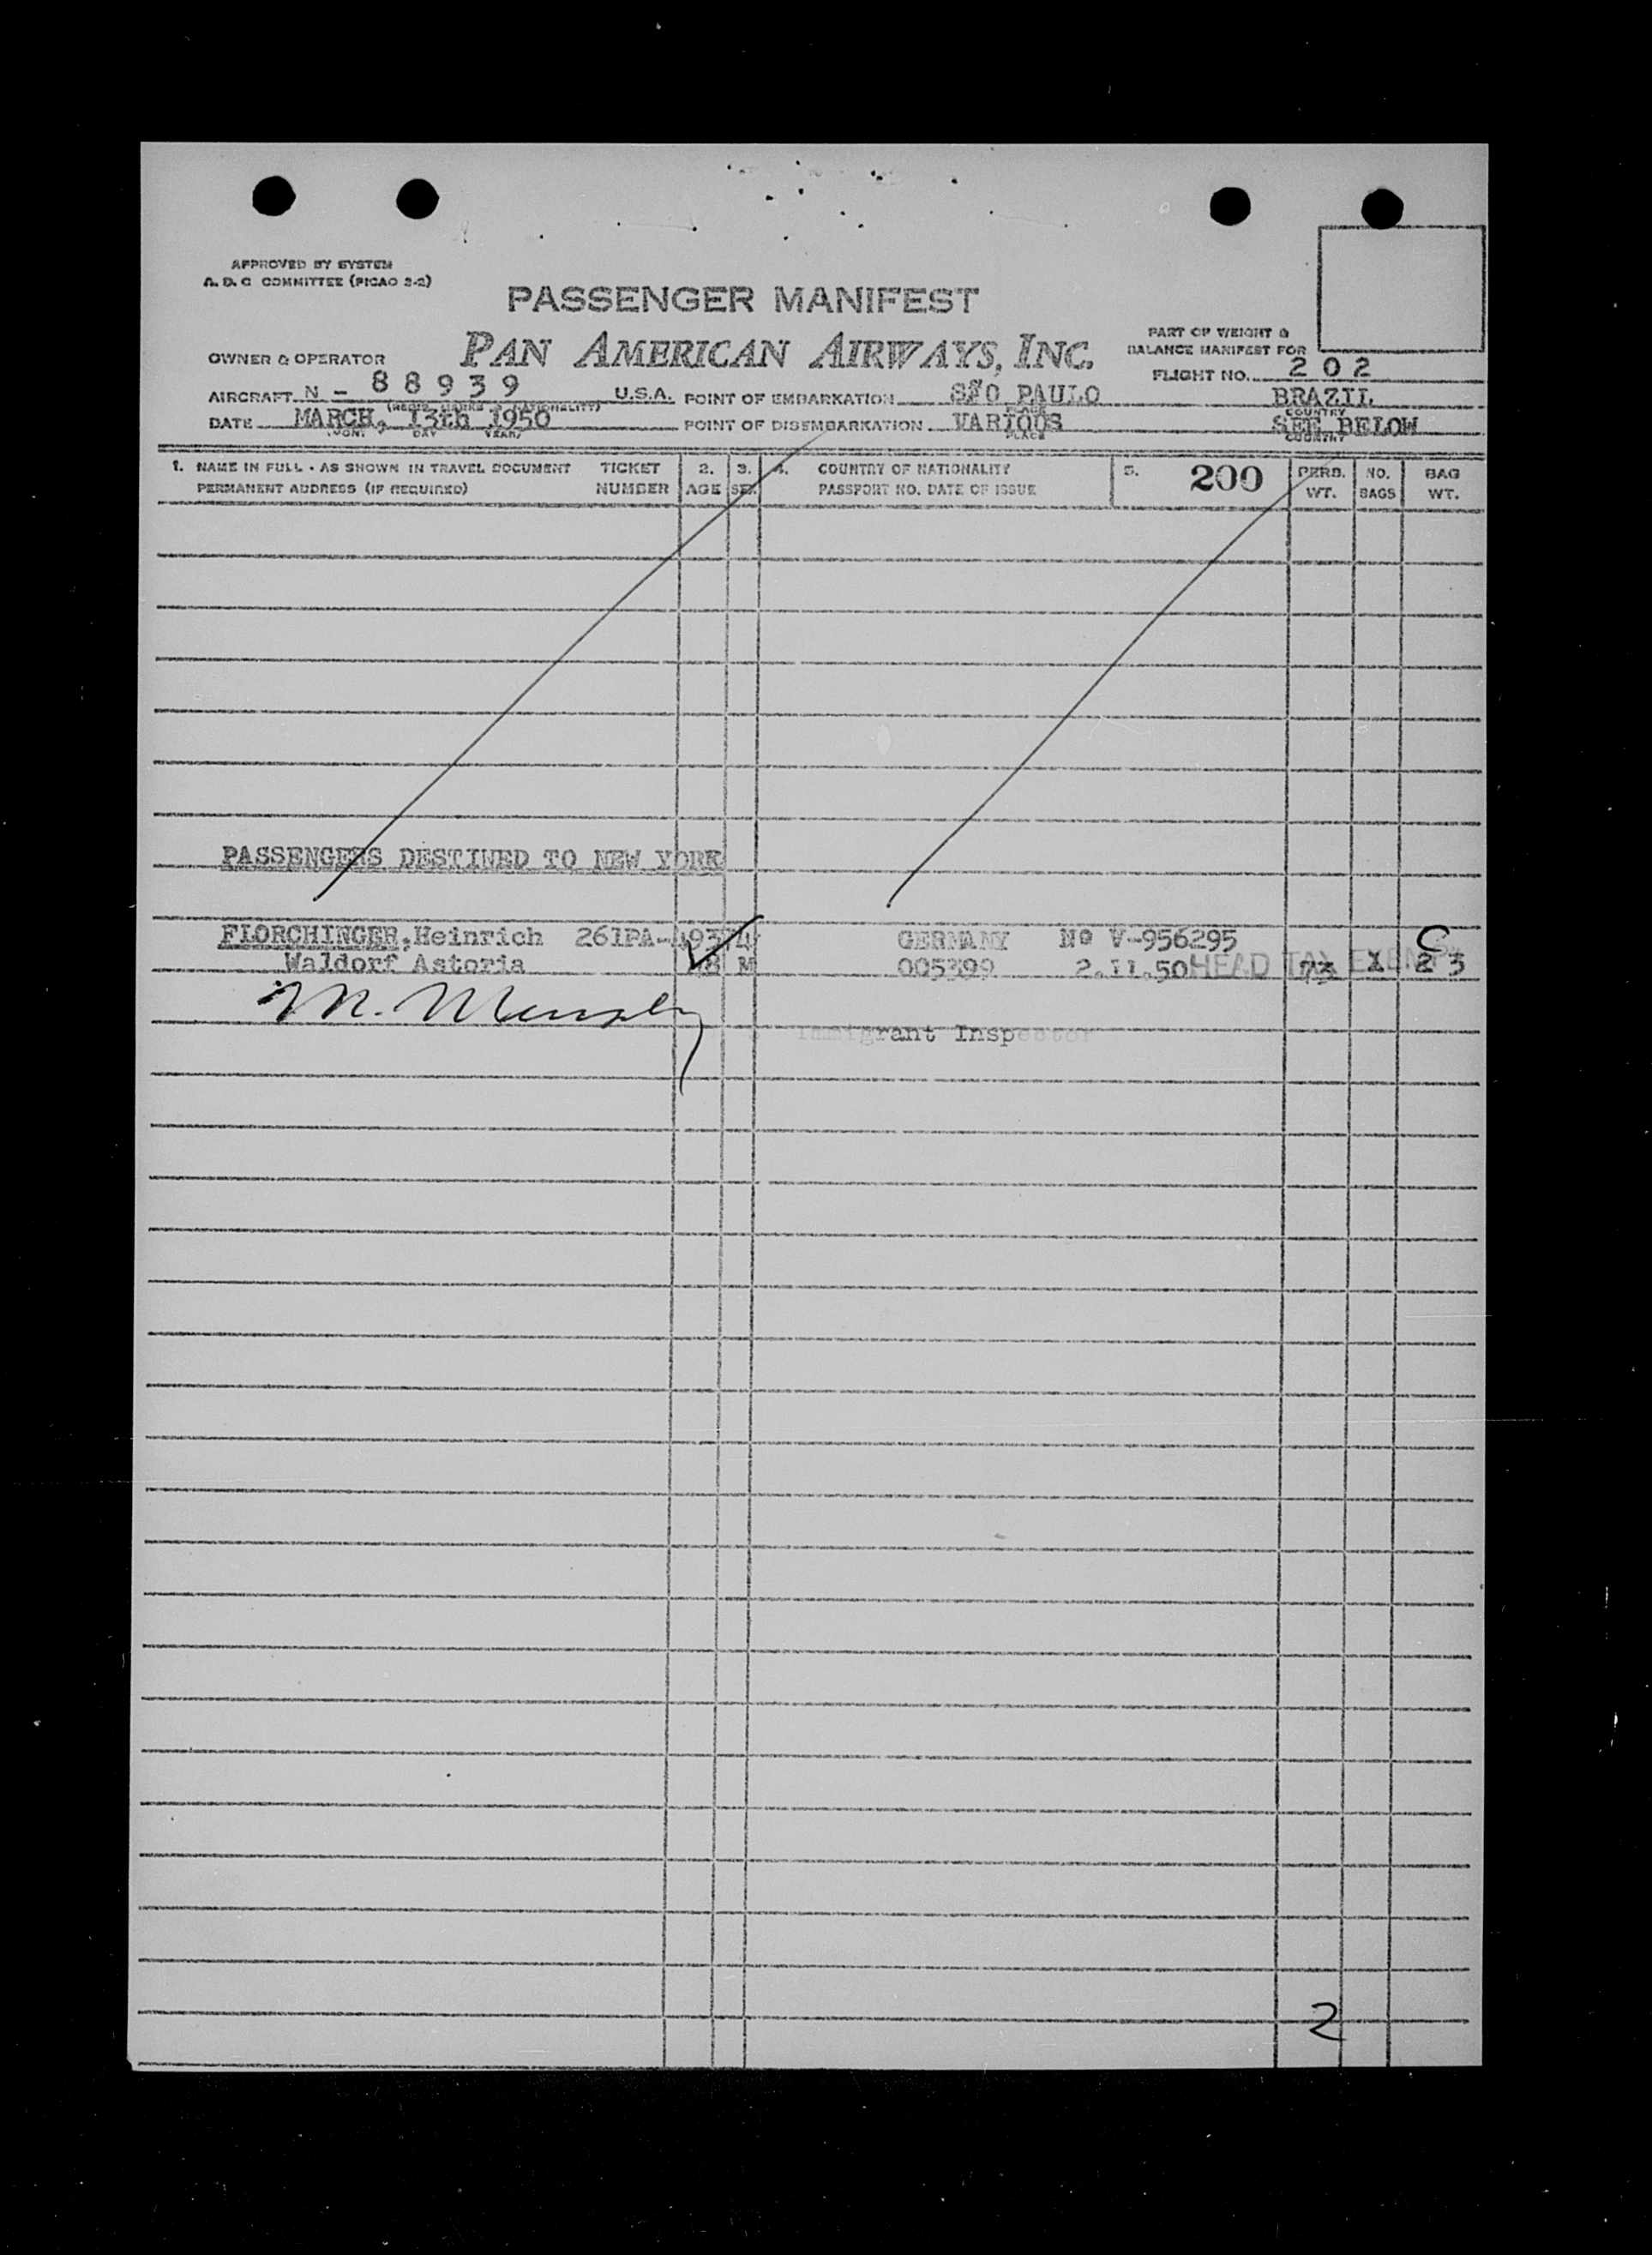 APPROVED BY SYSTEM
A. D. C COMMITTEE (PICAO 2-2)
PASSENGER MANIFEST
PAN AMERICAN AIRWAYS, INC.
PART OF WEIGHT &
BALANCE MANIFEST FOR
OWNER & OPERATOR
FLIGHT NO. 202
AIRCRAFT N - 88939 U.S.A. POINT OF EMBARKATION SÃO PAULO BRAZIL
(REGIS. MARKS & NATIONALITY) PLACE COUNTRY
DATE MARCH, 13th 1950 POINT OF DISEMBARKATION VARIOUS SEE BELOW
DAY YEAR) PLACE COUNTRY
1. NAME IN FULL - AS SHOWN IN TRAVEL DOCUMENT TICKET 2. 3. 4. COUNTRY OF NATIONALITY 5. 200 PERS. NO. BAG
PERMANENT ADDRESS (IF REQUIRED) NUMBER AGE SEX PASSPORT NO. DATE OF ISSUE WT. BAGS WT.
PASSENGERS DESTINED TO NEW YORK
FLORCHINGER, Heinrich 261PA- GERMANY Nº V-956295 C
Waldorf Astoria M 005399 2.11.50 HEAD TAX EXEMPT 73 1 23
M.
Immigrant Inspector
2